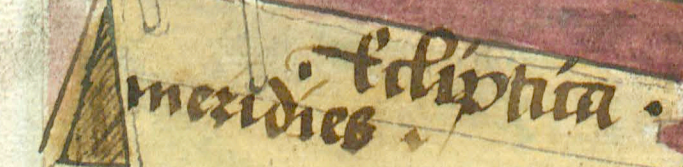 . Ecliptica .
meridies .